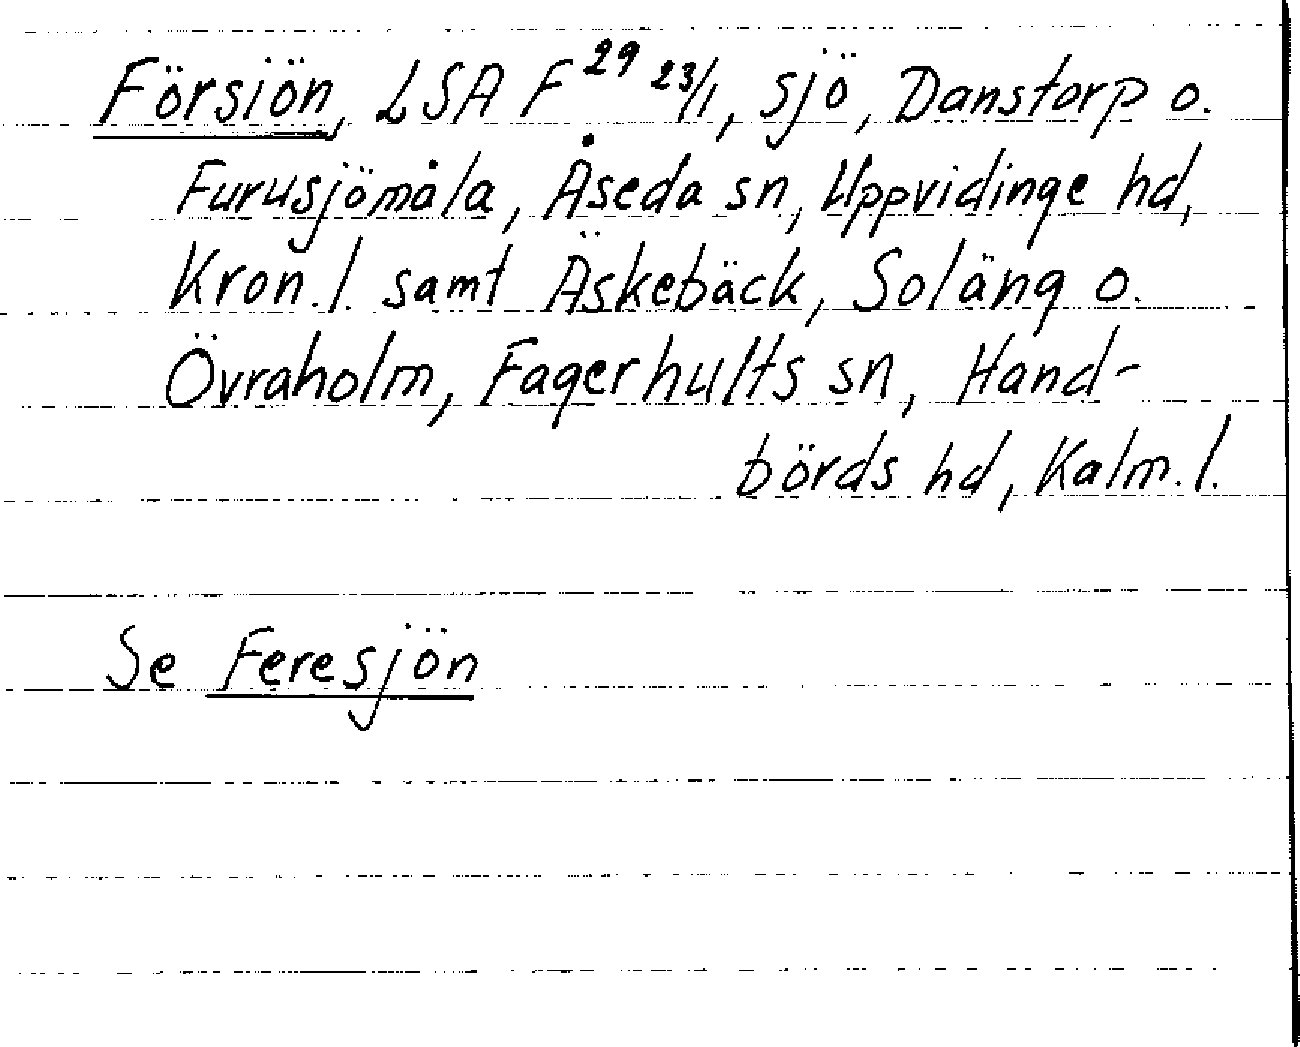 Försiön, LSA F²⁹ 23/1, sjö, Danstorp o.
Furusjömåla, Åseda sn, Uppvidinge hd,
Kron.l. samt Äskebäck, Soläng o.
Övraholm, Fagerhults sn, Hand-
börds hd, Kalm.l.
Se Feresjön